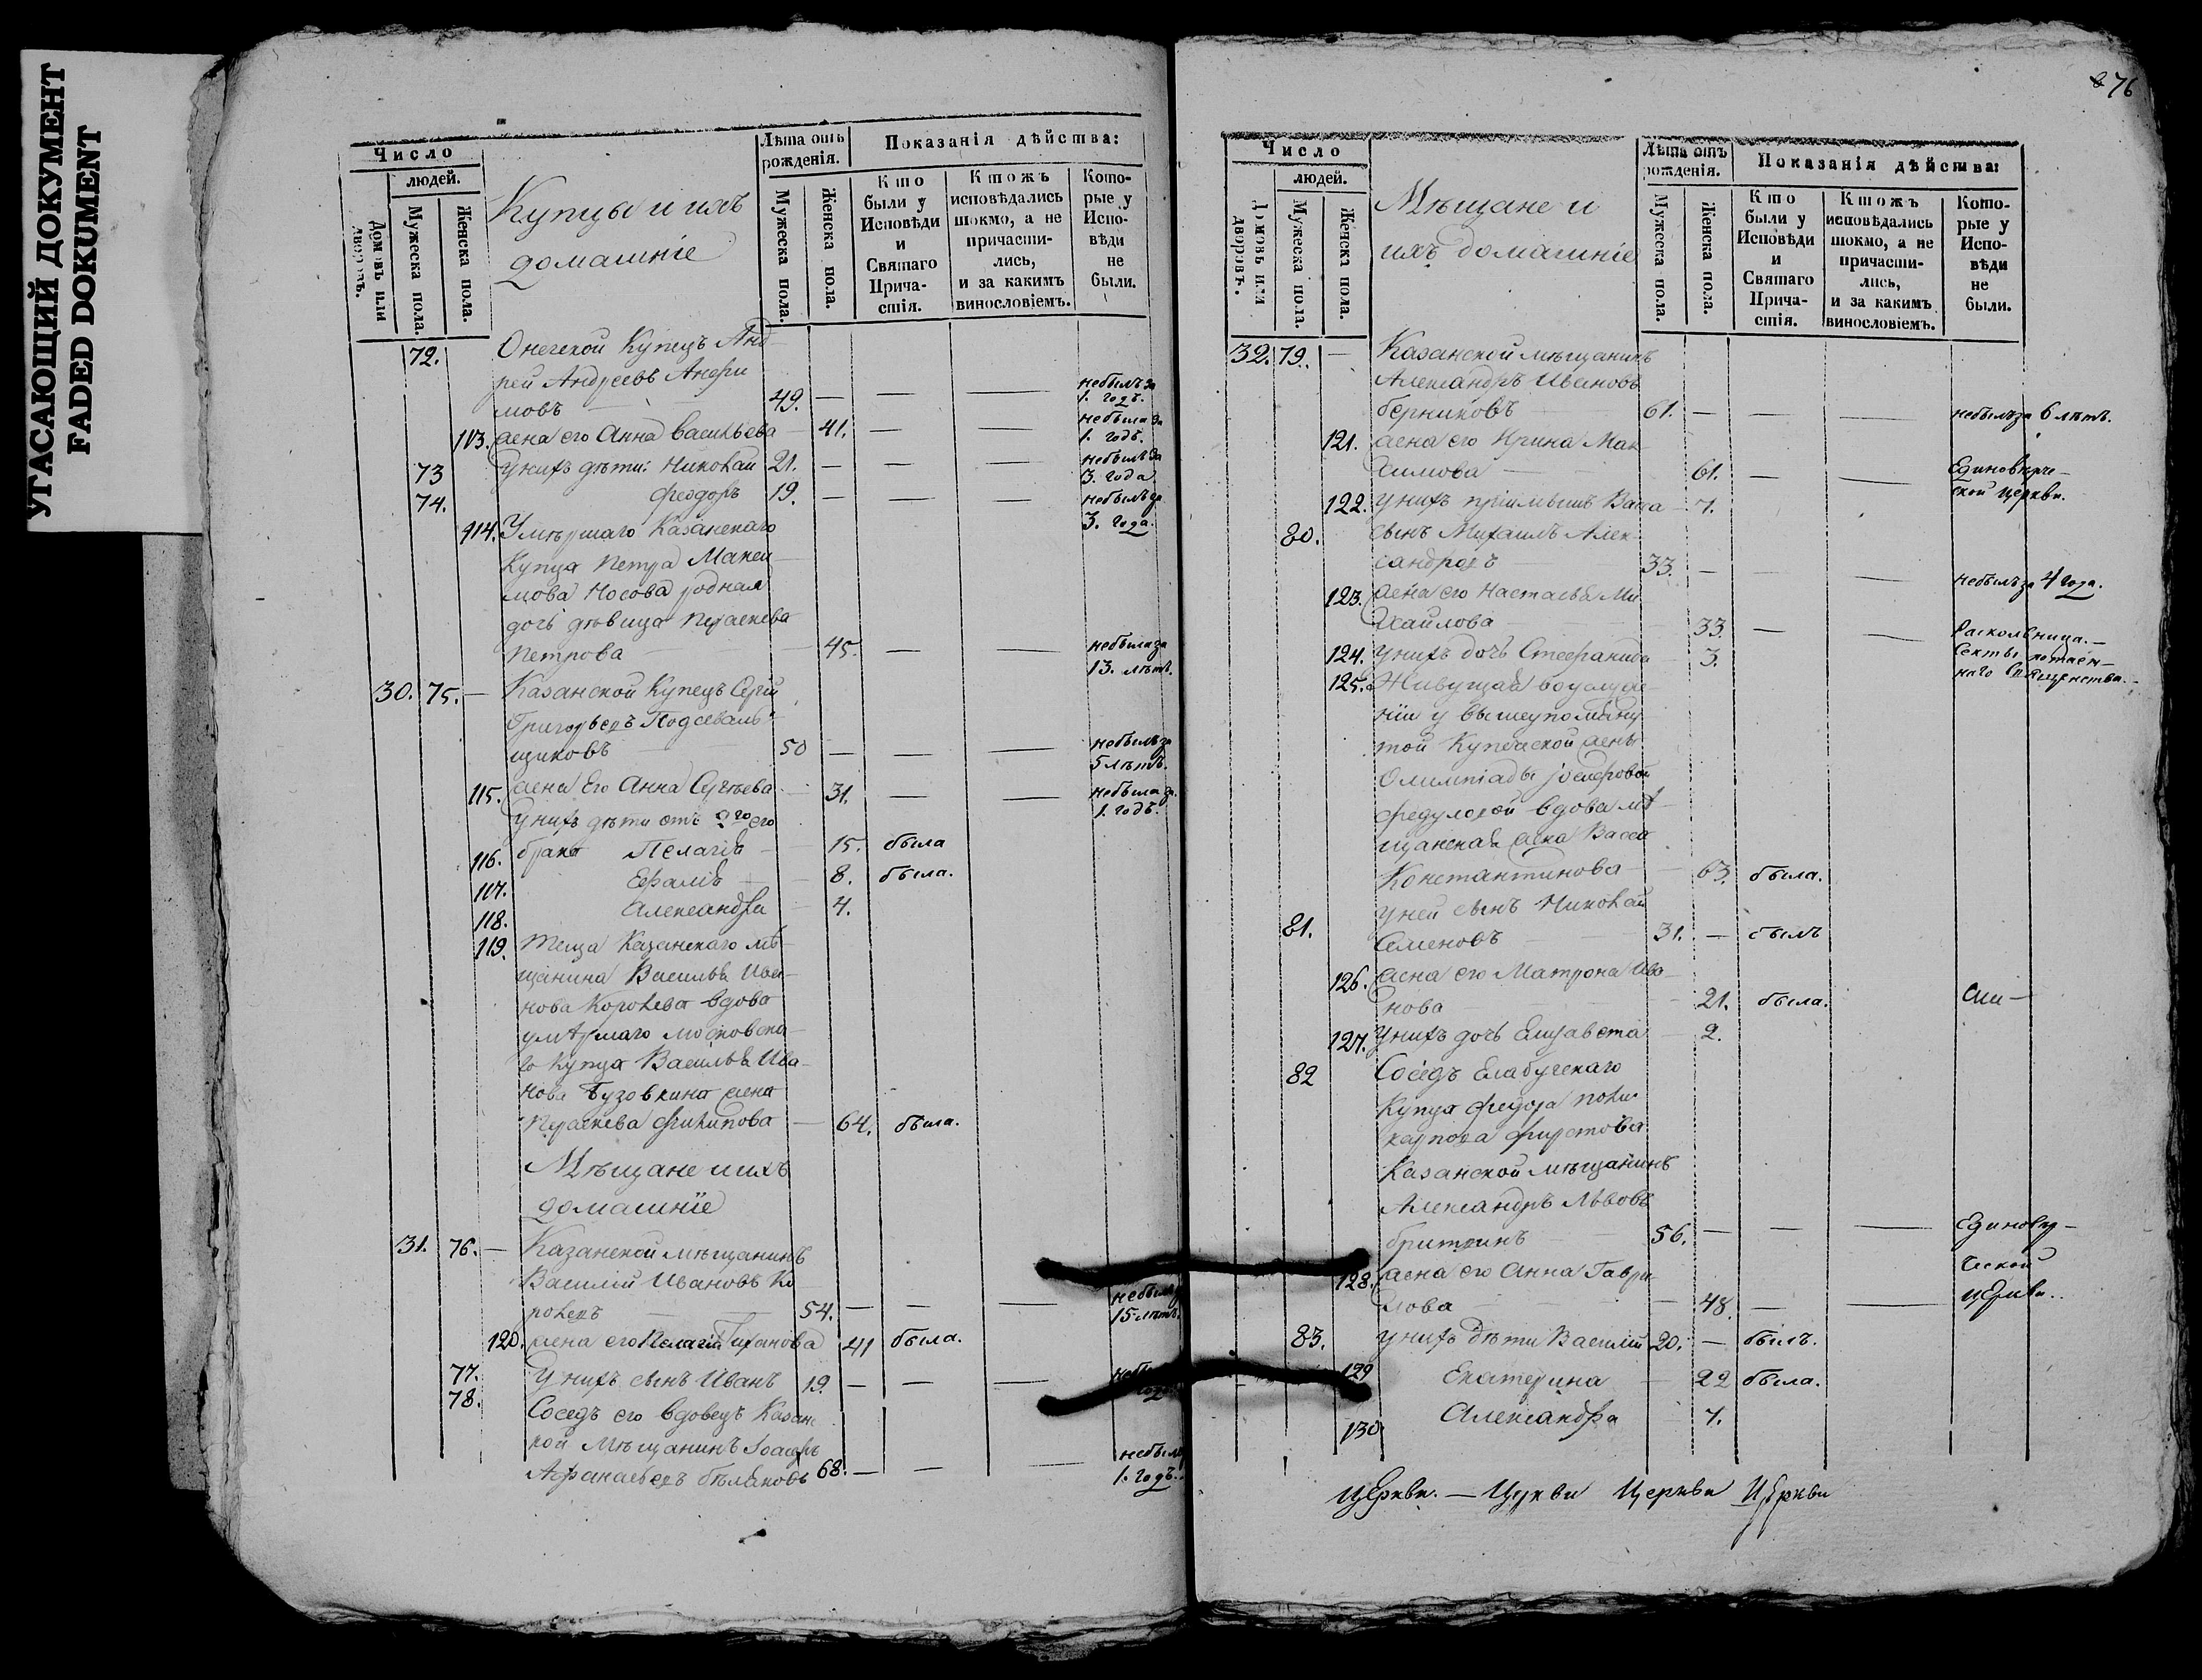 УГАСАЮЩИЙ ДОКУМЕНТ
FADED DOKUMENT
Число
людей.
Домовъ или дворовъ.
Мужеска пола.
Женска пола.
Купцы и ихъ
домашніе
Лѣта отъ рожденія.
Мужеска пола.
Женска пола.
Показанія дѣйства:
Кто были у Исповѣди и Святаго Причастія.
Ктожъ исповѣдались токмо, а не причастились, и за какимъ винословіемъ.
Которые у Исповѣди не были.
72. Онегской Купецъ Анд-
рей Андреевъ
мовъ 49. — — — небылъ за 1. годъ.
113. жена его Анна Васильева 41. — — небыла за 1. годъ.
73 у нихъ дѣти: Николай 21. — — — небылъ за 3. года
74. Феодоръ 19. — — — небылъ за 3. года.
114. Умѣршаго Казанскаго
Купца Петра Макси-
мова Носова родная
дочь дѣвица Параскева
Петрова — 45. — — небыла за 13. лѣтъ.
30. 75. — Казанской Купецъ Сергій
Григорьевъ Подсеваль-
щиковъ 50 — — — небылъ за 5 лѣтъ.
115. жена Его Анна Сергѣева 31. — — небыла за 1. годъ.
у нихъ дѣти отъ 2го его
116. брака Пелагія — 15. была
117. — 8. была.
118. Александра — 4.
119. теща Казанскаго мѣ-
щанина Василья Ива-
нова Королева вдова
умѣршаго московска-
го купца Василья Ива-
нова Бузовкина жена
Параскева Филипова — 64. была.
Мѣщане и ихъ
домашніе
31. 76. — Казанской мѣщанинъ
Василій Ивановъ Ко-
ролевъ 54. — — — небылъ 15 лѣтъ.
120. жена его Пелагія 41 была.
77. У нихъ сынъ Иванъ 19. — — —
78. Соседъ его вдовецъ Казанс
кой мѣщанинъ Іоасафъ
Афанасьевъ Бѣляковъ 68. — — — небылъ 1. годъ.
76
Число
людей.
Домовъ или дворовъ.
Мужеска пола.
Женска пола.
Мѣщане и
ихъ домашніе
Лѣта отъ рожденія.
Мужеска пола.
Женска пола.
Показанія дѣйства:
Кто были у Исповѣди и Святаго Причастія.
Ктожъ исповѣдались токмо, а не причастились, и за какимъ винословіемъ.
Которые у Исповѣди не были.
32. 79. — Казанской мѣщанинъ
Александръ Ивановъ
Берниковъ 61. — — — небылъ за 6 лѣтъ.
121. жена его Ирина Мак-
симова — 61. — — Единовѣрче-
ской церкви.
122. у нихъ пріимышъ Васса — 7.
80. сынъ Михаилъ Алек-
сандровъ 33. — — — небылъ за 4 года.
123. жена его Настасья Ми-
хайлова — 33. — — Раскольница. —
124. у нихъ дочь Стефанида 3. Секты потаен-
наго Священства.
125. Живущая во услуже-
ніи у вышеупомяну-
той Купеческой жены
Олимпіады
Федуловой вдова мѣ-
щанская жена Васса
Константинова — 63. была.
81. у ней сынъ Николай
Семеновъ 31. — былъ
126. жена его Матрона Ива-
нова — 21. была.
127. у нихъ дочь Елизавета — 2.
82 Соседъ Елабугскаго
Купца Федора Поли-
карпова
Казанской мѣщанинъ
Александръ Львовъ
56. — — — Единовѣр-
ческой
128. жена его Анна Гаври-
лова — 48. — — церкви.
83. у нихъ дѣти Василій 20. — былъ.
129 Екатерина — 22 была.
130 Александра 7.
церкви. — Церкви Церкви Церкви